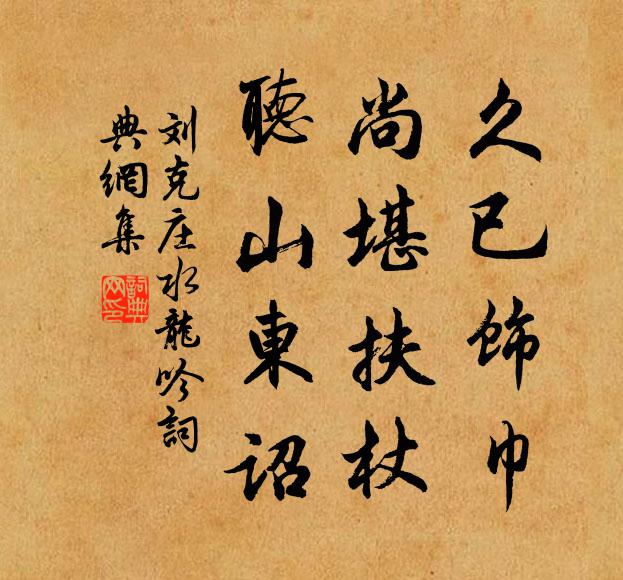 久已飾巾
尚堪扶杖
聽山東詔
刘克庄水龍吟詞
典網集
詞典
网印